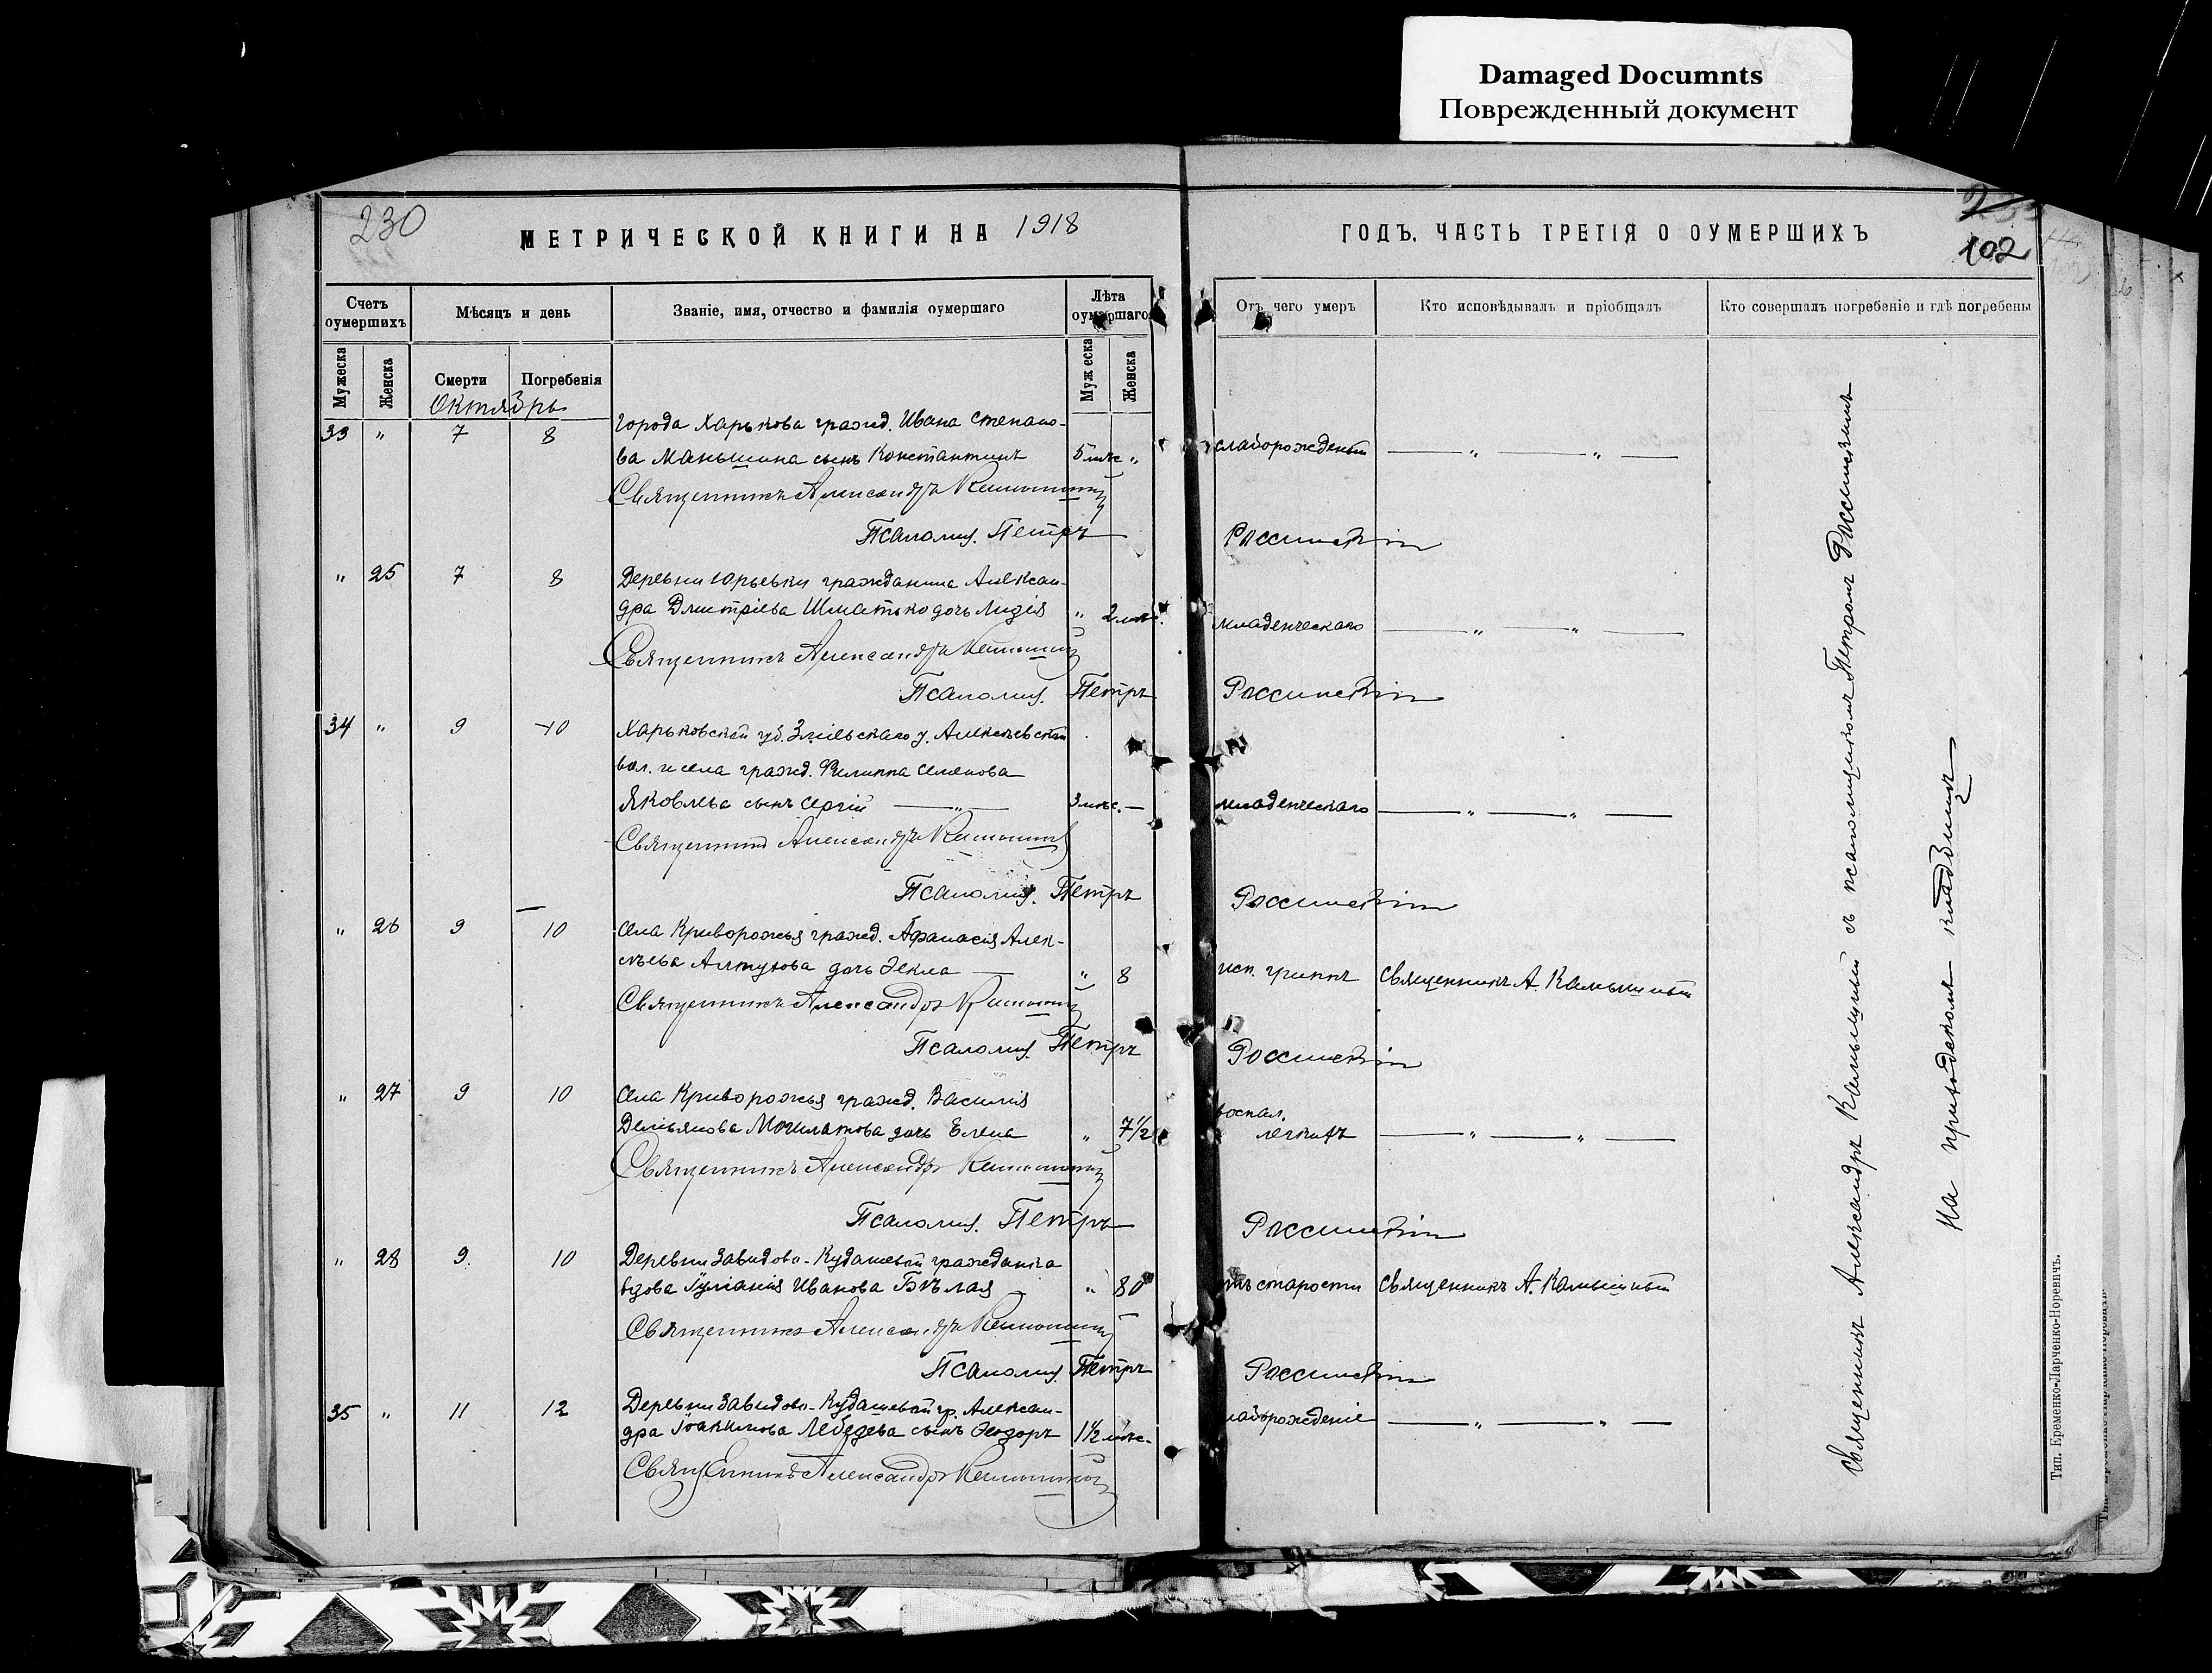 Damaged Documnts
Поврежденный документ
230
МЕТРИЧЕСКОЙ КНИГИ НА 1918
ГОДЪ. ЧАСТЬ ТРЕТІЯ О ОУМЕРШИХЪ
102
Счетъ оумершихъ
Мѣсяцъ и день
Званіе, имя, отчество и фамилія оумершаго
Лѣта оумершаго
Отъ чего умеръ
Кто исповѣдывалъ и пріобщалъ
Кто совершалъ погребеніе и гдѣ погребены
Мужеска
Женска
Смерти
Погребенія
Муж еска
Женска
Октябрь
33 " 7 8 города Харькова гражд. Ивана Степано-
ва Маньшина сынъ Константинъ 5 мѣс " слаборожденый — " — " —
Священникъ Александръ
Псаломщ. Петръ Россинскій
" 25 7 8 Деревни Юрьевки гражданина Алексан-
дра Дмитріева Шматько дочь Лидія " 2 мѣс. младенческаго — " — " —
Священникъ Александръ
Псаломщ. Петръ Россинскій
34 " 9 10 Харьковской губ. Зміевскаго у. Алексѣевской
вол. и села гражд. Филиппа Семенова
Яковлева сынъ Сергій — " — 3 мѣс. — младенческаго — " — " —
Священникъ Александръ
Псаломщ. Петръ Россинскій
" 26 9 10 Села Криворожья гражд. Афанасія Алек-
сѣева Алтухова дочь Фекла — " 8 исп. гриппъ Священникъ А. Камышный
Священникъ Александръ
Псаломщ. Петръ Россинскій
" 27 9 10 Села Криворожья гражд. Василія
Демьянова дочь Елена " 7½ воспал.
легкихъ — " — " —
Священникъ Александръ
Псаломщ. Петръ Россинскій
" 28 9. 10 Деревни Завидово-Кудашевой гражданка
вдова Іуліанія Иванова Бѣлая — " 80 отъ старости Священникъ А. Камышный
Священникъ Александръ
Псаломщ. Петръ Россинскій
35 " 11 12 Деревни Завидово-Кудашевой гр. Алексан-
дра Іоакимова Лебедева сынъ Ѳеодоръ 1½ мѣс. слаборожденіе — " — " —
Священникъ Александръ
Священникъ Александръ Камышный съ псаломщикомъ Петромъ Россинскимъ
На приходскомъ кладбищѣ
Тип. Еременко-Ларченко-Норевичъ.